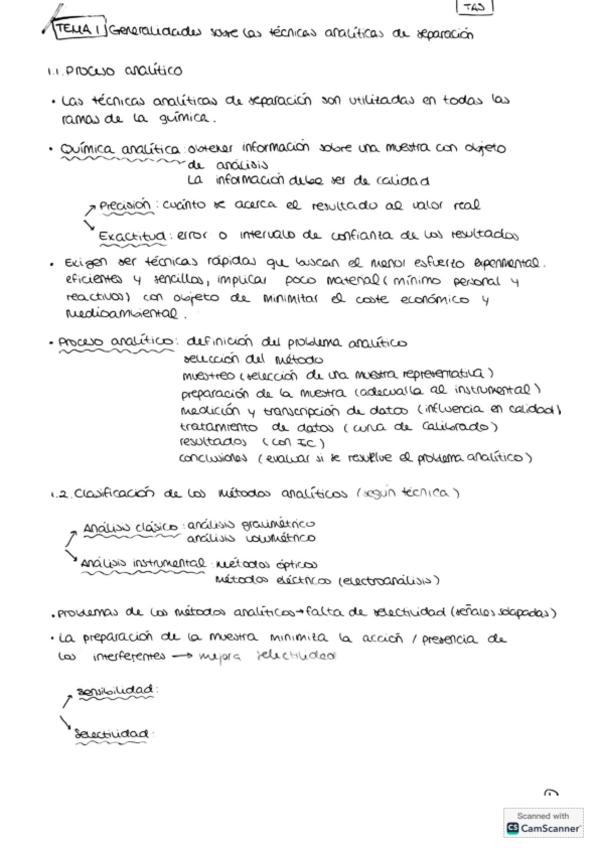 TAS
TEMA 1 Generalidades sobre las técnicas analíticas de separación
1.1. Proceso analítico
• Las técnicas analíticas de separación son utilizadas en todas las
ramas de la química.
• Química analítica: obtener información sobre una muestra con objeto
de análisis
La información debe ser de calidad
Precisión: cuánto se acerca el resultado al valor real
Exactitud: error o intervalo de confianza de los resultados
• Exigen ser técnicas rápidas que buscan el menor esfuerzo experimental.
eficientes y sencillos, implicar poco material (mínimo personal y
reactivos) con objeto de minimizar el coste económico y
medioambiental.
• Proceso analítico: definición del problema analítico
selección del método
muestreo (selección de una muestra representativa)
preparación de la muestra (adecuarla al instrumental)
medición y transcripción de datos (influencia en calidad)
tratamiento de datos (curva de calibrado)
resultados (con IC)
conclusiones (evaluar si se resuelve el problema analítico)
1.2. Clasificación de los métodos analíticos (según técnica)
Análisis clásico: análisis gravimétrico
análisis volumétrico
Análisis instrumental: métodos ópticos
métodos eléctricos (electroanálisis)
• Problemas de los métodos analíticos → falta de selectividad (señales solapadas)
• La preparación de la muestra minimiza la acción / presencia de
los interferentes → mejora selectividad
Sensibilidad:
Selectividad:
1
Scanned with
CS CamScanner